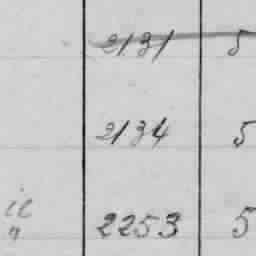 2131 5
2134 5
ie
" 2253 5